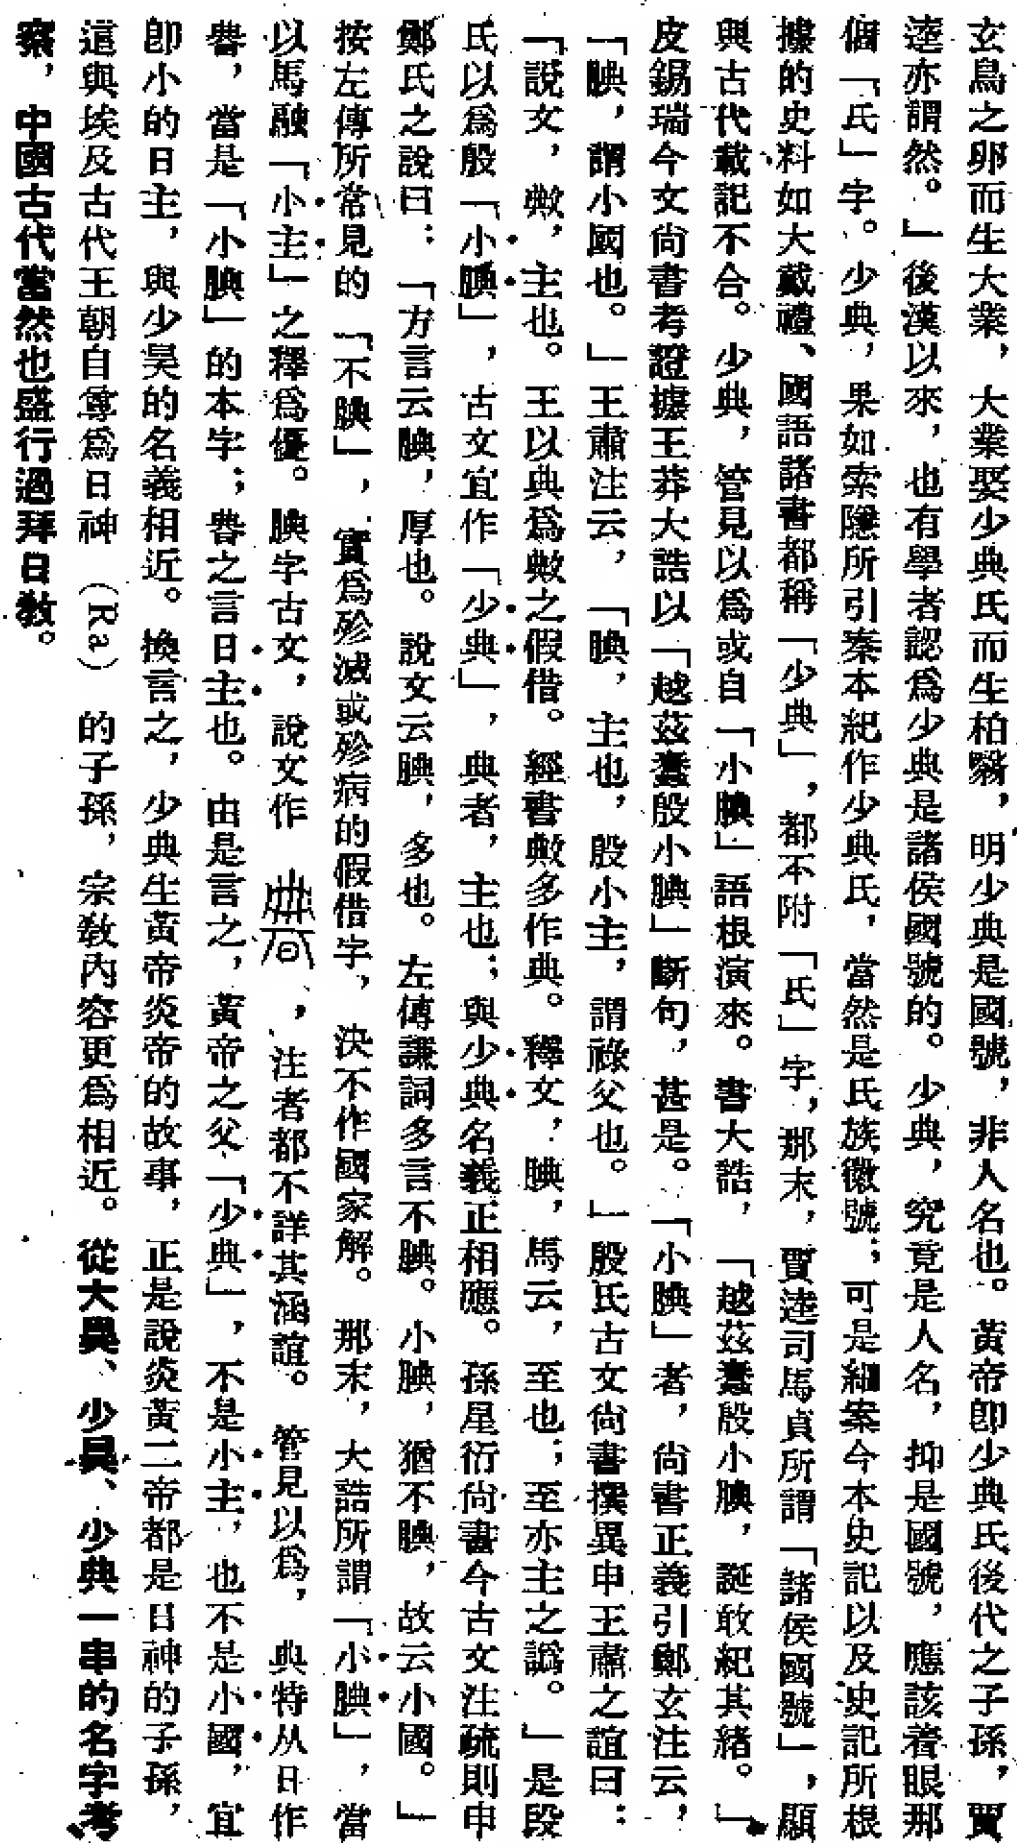 玄鳥之卵而生大業，大業娶少典氏而生柏翳，明少典是國號，非人名也。黃帝卽少典氏後代之子孫，賈
逵亦謂然。」後漢以來，也有學者認爲少典是諸侯國號的。少典，究竟是人名，抑是國號，應該着眼那
個「氏」字。少典，果如索隱所引秦本紀作少典氏，當然是氏族徽號；可是細案今本史記以及史記所根
據的史料如大戴禮、國語諸書都稱「少典」，都不附「氏」字，那末，賈逵司馬貞所謂「諸侯國號」，顯
與古代載記不合。少典，管見以爲或自「小腆」語根演來。書大誥，「越茲蠢殷小腆，誕敢紀其緒。」
皮錫瑞今文尙書考證據王莽大誥以「越茲蠢殷小腆」斷句，甚是。「小腆」者，尙書正義引鄭玄注云，
「腆，謂小國也。」王肅注云，「腆，主也，殷小主，謂祿父也。」殷氏古文尙書撰異申王肅之誼曰：
「說文，敟，主也。王以典爲敟之假借。經書敟多作典。釋文，腆，馬云，至也；至亦主之譌。」是段
氏以爲殷「小腆」，古文宜作「少典」，典者，主也；與少典名義正相應。孫星衍尙書今古文注疏則申
鄭氏之說曰：「方言云腆，厚也。說文云腆，多也。左傳謙詞多言不腆。小腆，猶不腆，故云小國。」
按左傳所常見的「不腆」，實爲殄滅或殄病的假借字，決不作國家解。那末，大誥所謂「小腆」，當
以馬融「小主」之釋爲優。腆字古文，說文作　，注者都不詳其涵誼。管見以爲，典特从日作
㫫，當是「小腆」的本字；㫫之言日主也。由是言之，黃帝之父「少典」，不是小主，也不是小國，宜
卽小的日主，與少昊的名義相近。換言之，少典生黃帝炎帝的故事，正是說炎黃二帝都是日神的子孫，
這與埃及古代王朝自尊爲日神（Ra）的子孫，宗敎內容更爲相近。從大昊、少昊、少典一串的名字考
察，中國古代當然也盛行過拜日敎。